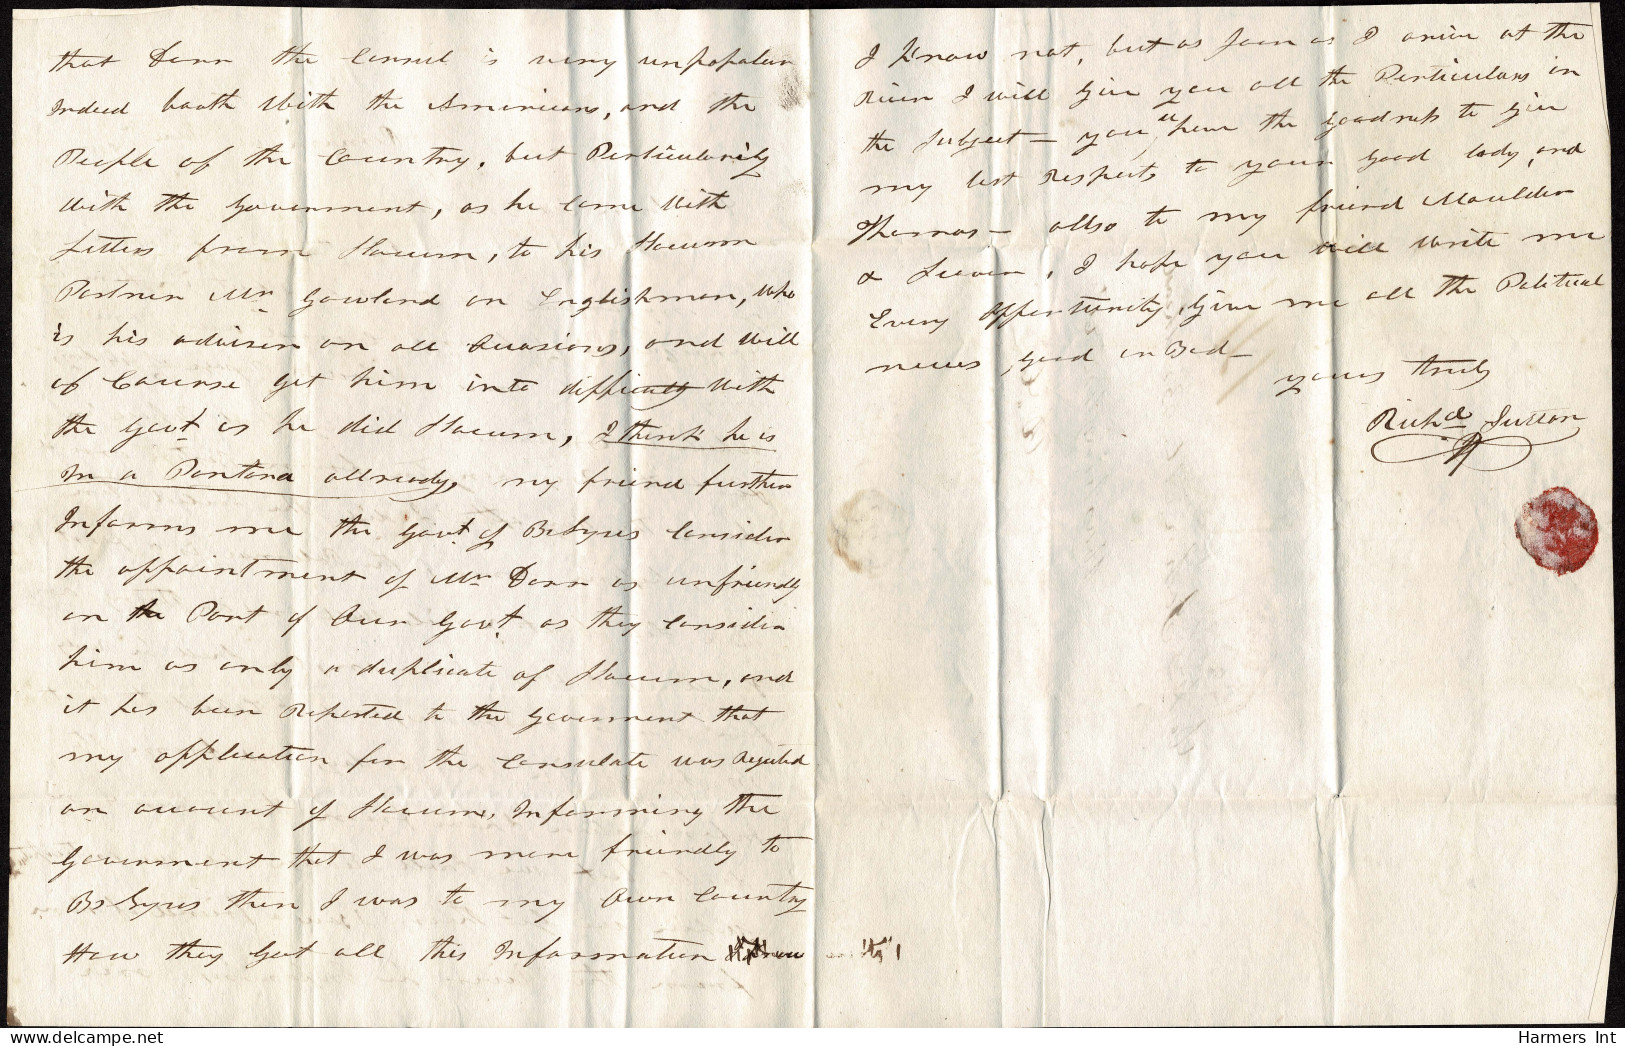 that Dorr the Consul is very unpopular
Indeed booth With the Americans, and the
People of the Country, but Perticularily
With the Government, as he Came With
Letters from Slacum, to his Slacum
Partner Mr Gowland an Englishman, Who
is his adviser on all Occasions, and Will
of Course get him into difficulty With
the Govt as he did Slacum, I think he is
In a Pantana allready, my friend further
Informs me the Govt of Bs Ayres Consider
the appointment of Mr Dorr as unfriendly
on the Part of Our Govt as they Consider
him as only a duplicate of Slacum, and
it has been Reported to the Goverment that
my application for the Consulate was Rejected
on account of Slacum, Informing the
Goverment that I was more friendly to
Bs Ayres then I was to my Own Country
How they Got all this Information
I Know not, but as soon as I arive at the
River I will Give you all the Perticulars in
the Subject — you'll have the Goodness to Give
my best Respects to your good lady, and
Thomas — allso to my friend Moulder
& , I hope you will Write me
Every Oppertunity, Give me all the Political
news, Good or Bad —
yours truly
Richd Sutton
Harmers Int